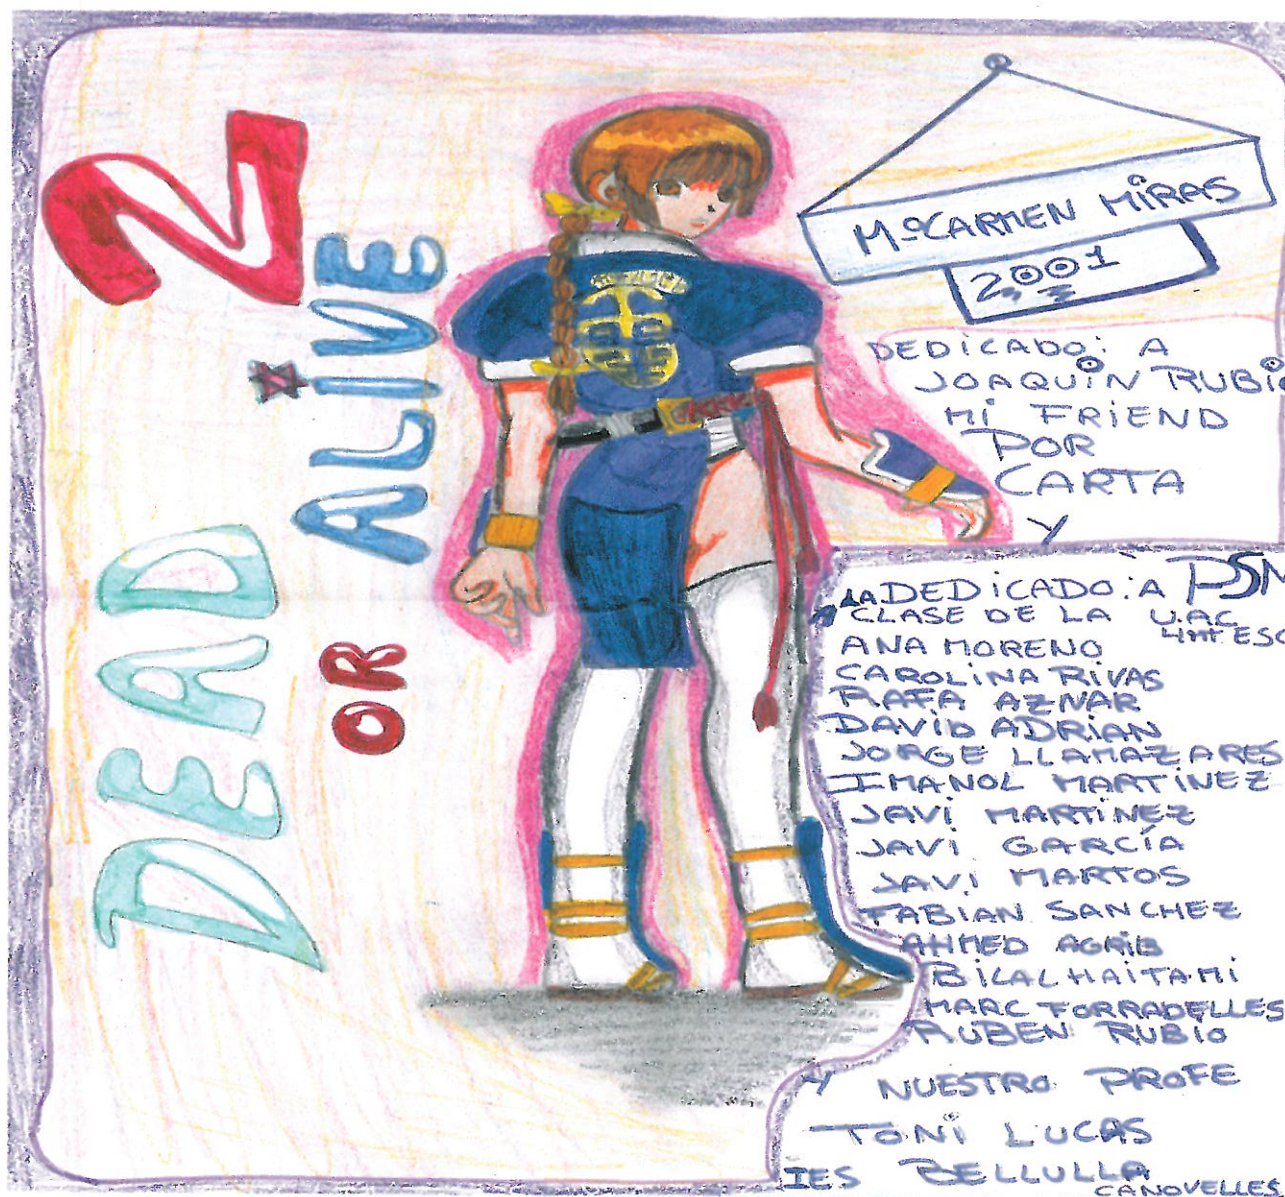 DEAD
OR
ALIVE
2
Mª CARMEN MIRAS
2001
DEDICADO: A
JOAQUÍN RUBIO
MI FRIEND
POR
CARTA
Y
DEDICADO: A PSM
LA CLASE DE LA U.A.C
4rt ESO
ANA MORENO
CAROLINA RIVAS
RAFA AZNAR
DAVID ADRIAN
JORGE LLAMAZARES
IMANOL MARTÍNEZ
JAVI MARTÍNEZ
JAVI GARCÍA
JAVI MARTOS
FABIAN SANCHEZ
AHMED AGRIB
BILAL HAITAMI
MARC TORRADELLES
RUBEN RUBIO
Y NUESTRO PROFE
TONI LUCAS
IES BELLULLA
CANOVELLES